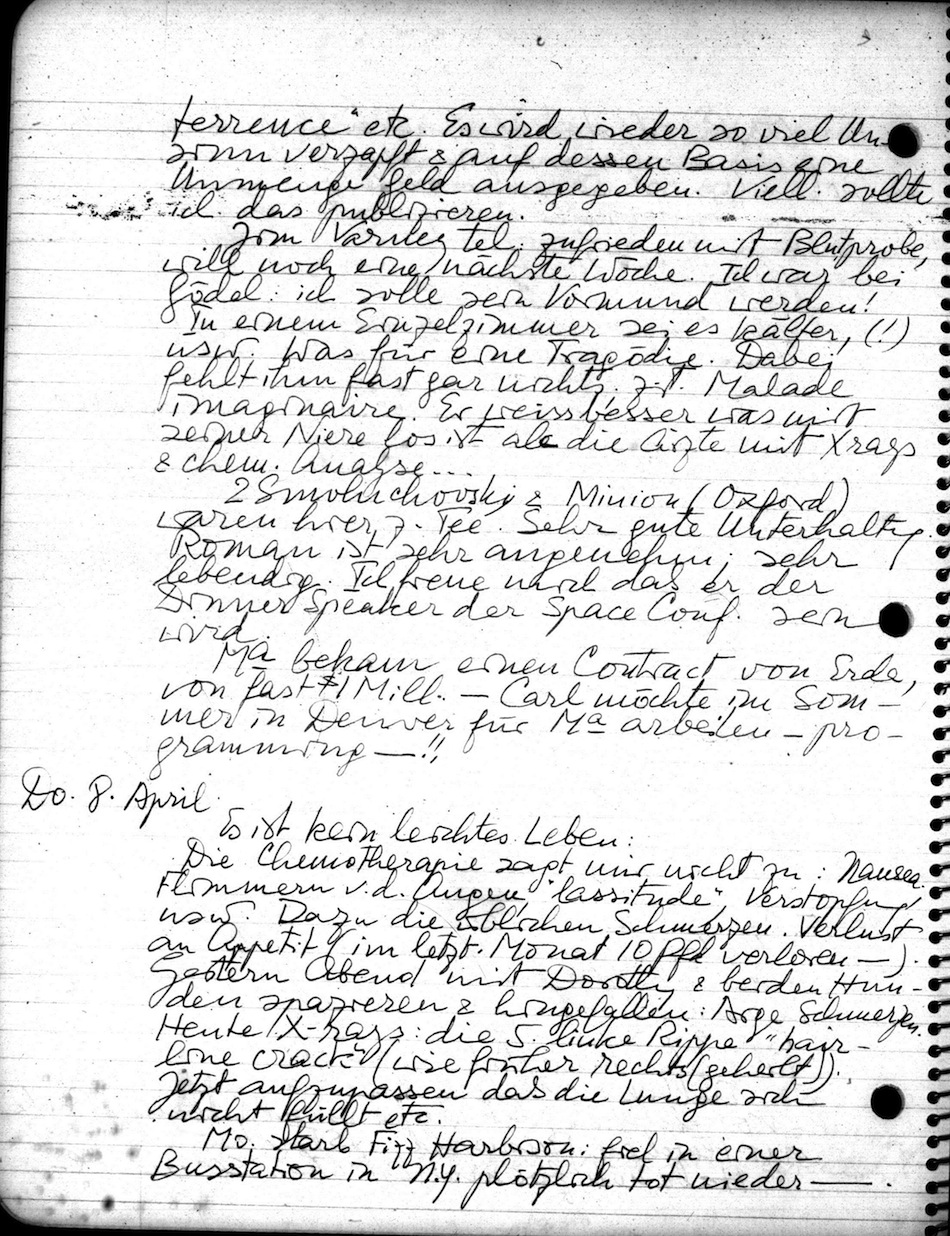 terrence" etc. Es wird wieder so viel Un-
sinn verzapft & auf dessen Basis eine
Unmenge Geld ausgegeben. Viell. sollte
ich das publizieren.
Jim Varney tel. zufrieden mit Blutprobe,
will noch eine nächste Woche. Ich war bei
Gödel: ich solle sein Vormund werden!
In einem Einzelzimmer sei es kälter, (!)
usw. Was für eine Tragödie. Dabei
fehlt ihm fast gar nichts, z.T. Malade
imaginaire. Er weiss besser was mit
seiner Niere los ist als die Ärzte mit Xrays
& chem. Analyse...
2 Smoluchovski & Minion (Oxford)
waren hier z. Tee. Sehr gute Unterhaltg.
Roman ist sehr angenehm, sehr
lebendig. Ich freue mich das er der
Dinner Speaker der Space Conf. sein
wird.
Ma bekam einen Contract von Erda,
von fast $1 Mill. — Carl möchte im Som-
mer in Denver für Ma arbeiten — pro-
gramming —!!
Do. 8. April.
Es ist kein leichtes Leben:
Die Chemotherapie sagt mir nicht zu: Nausea,
Flimmern v.d. Augen, "lassitude", Verstopfung,
usw. Dazu die üblichen Schmerzen. Verlust
an Appetit (im letzt. Monat 10 Pfd verloren —).
Gestern Abend mit Dorothy & beiden Hun-
den spazieren & hingefallen: Arge Schmerzen.
Heute X-rays: die 5. linke Rippe "hair-
line crack" (wie früher rechts (geheilt)).
Jetzt aufzupassen das die Lunge sich
nicht füllt etc.
Mo. starb Fizz Harbison: fiel in einer
Busstation in N.Y. plötzlich tot nieder —.